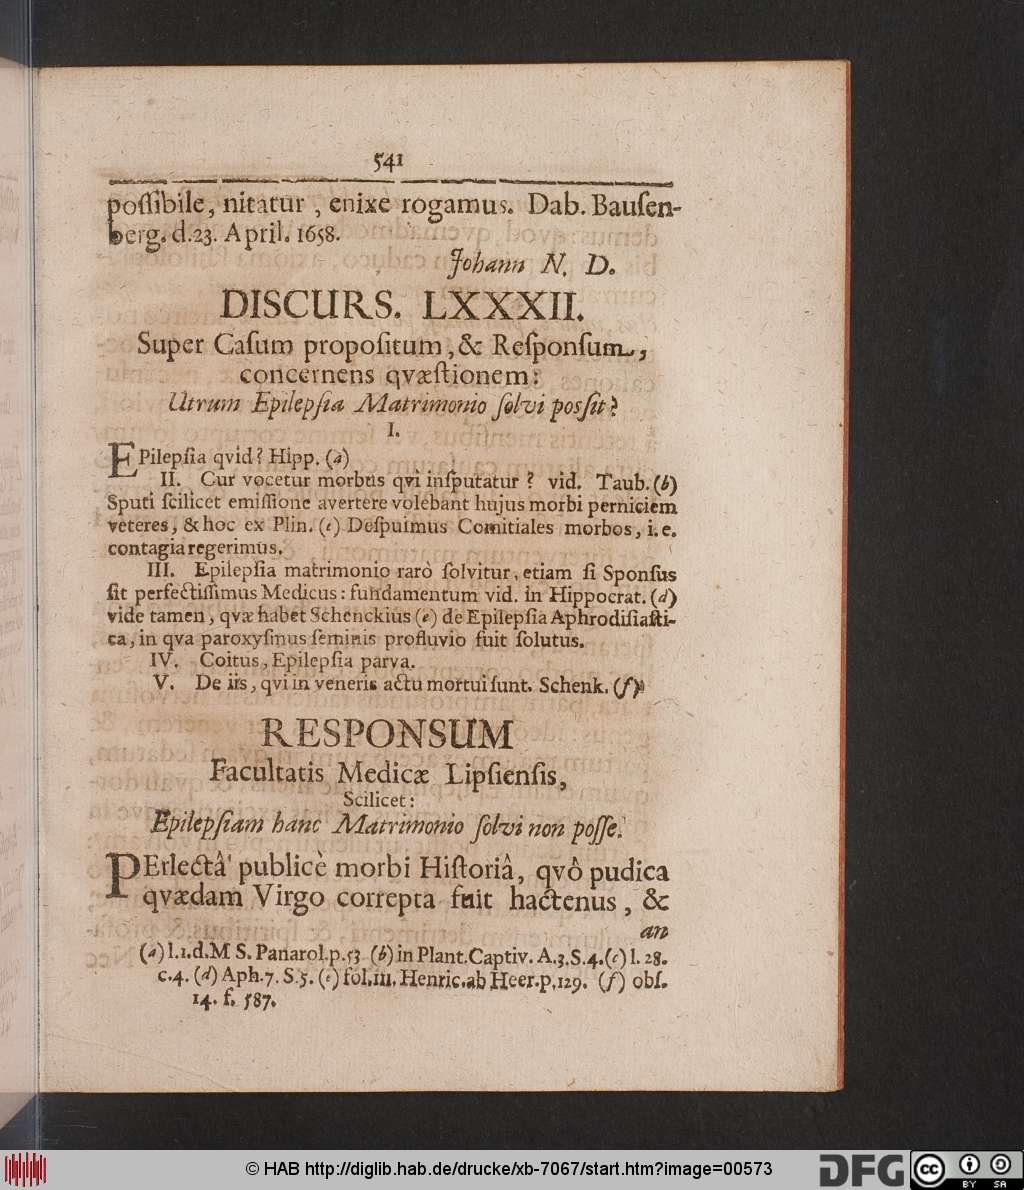 541
poſſibile, nitatur, enixe rogamus. Dab. Bauſen-
berg. d. 23. April. 1658.
Johann N. D.
DISCURS. LXXXII.
Super Caſum propoſitum, & Reſponſum,
concernens qvæſtionem:
Utrum Epilepſia Matrimonio ſolvi poſſit?
I.
EPilepſia qvid? Hipp. (a)
II. Cur vocetur morbus qvi inſputatur? vid. Taub. (b)
Sputi ſcilicet emiſſione avertere volebant hujus morbi perniciem
veteres, & hoc ex Plin. (c) Deſpuimus Comitiales morbos, i. e.
contagia regerimus.
III. Epilepſia matrimonio rarò ſolvitur, etiam ſi Sponſus
ſit perfectiſſimus Medicus: fundamentum vid. in Hippocrat. (d)
vide tamen, qvæ habet Schenckius (e) de Epilepſia Aphrodiſiaſti-
ca, in qva paroxyſmus ſeminis profluvio fuit ſolutus.
IV. Coitus, Epilepſia parva.
V. De iis, qvi in veneris actu mortui ſunt. Schenk. (f)
RESPONSUM
Facultatis Medicæ Lipſienſis,
Scilicet:
Epilepſiam hanc Matrimonio ſolvi non poſſe.
PErlectâ publicè morbi Hiſtoriâ, qvô pudica
qvædam Virgo correpta fuit hactenus, &
an
(a) l. 1. d. M S. Panarol. p. 53 (b) in Plant. Captiv. A. 3. S. 4. (c) l. 28.
c. 4. (d) Aph. 7. S. 5. (e) fol. 111. Henric. ab Heer. p. 129. (f) obſ.
14. f. 587.
© HAB http://diglib.hab.de/drucke/xb-7067/start.htm?image=00573
DFG
CC BY SA